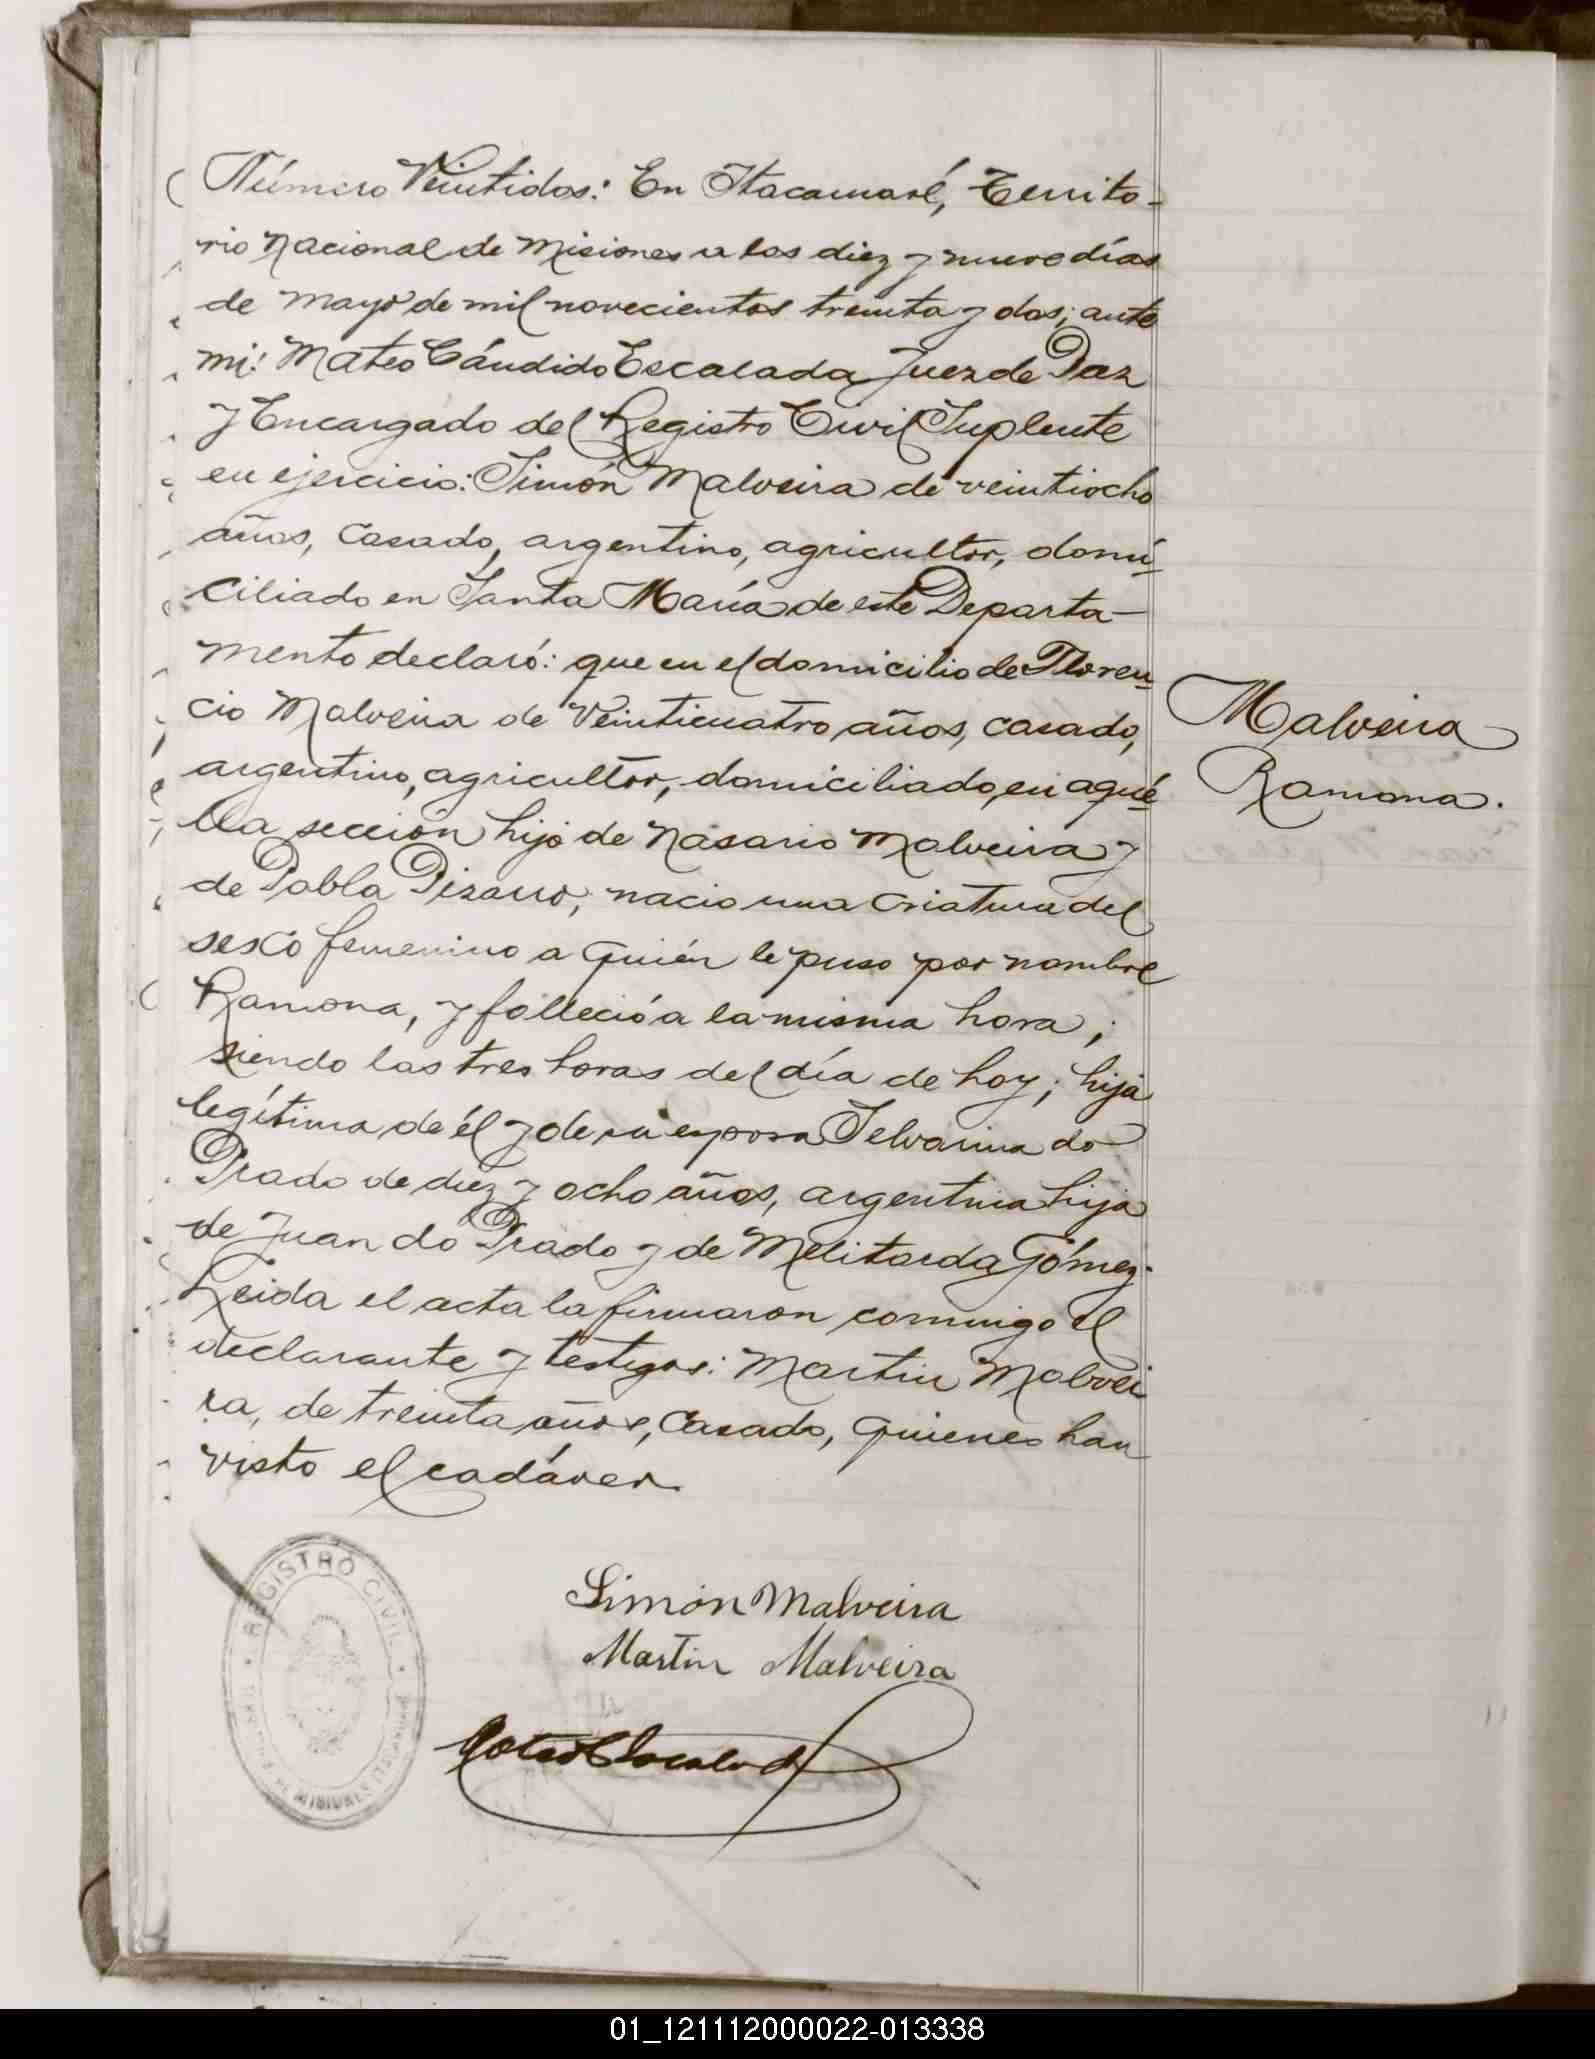 Número Veintidos: En Itacaruaré, Territo-
rio Nacional de Misiones a los diez y nueve días
de Mayo de mil novecientos treinta y dos; ante
mi: Mateo Cándido Escalada Juez de Paz
y Encargado del Registro Civil Suplente
en ejercicio: Simón Malveira de veintiocho
años, casado, argentino, agricultor, domi-
ciliado en Santa María de este Departa-
mento declaró: que en el domicilio de Floren-
cio Malveira de veinticuatro años, casado,
Malveira
argentino, agricultor, domiciliado, en aqué-
Ramona.
lla sección hijo de Nasario Malveira y
de Pabla Pizarro; nacio una criatura del
sexo femenino a quién le puso por nombre
Ramona, y falleció a la misma hora;
siendo las tres horas del día de hoy; hija
legítima de él y de su esposa Selvarina do
Prado de diez y ocho años, argentina hija
de Juan do Prado y de Melitarda Gómez.
Leida el acta la firmaron conmigo el
declarante y testigos: Martin Malvei
ra, de treinta años, casado, quienes han
visto el cadáver.
REGISTRO CIVIL
MISIONES
Simón Malveira
Martin Malveira
01_121112000022-013338